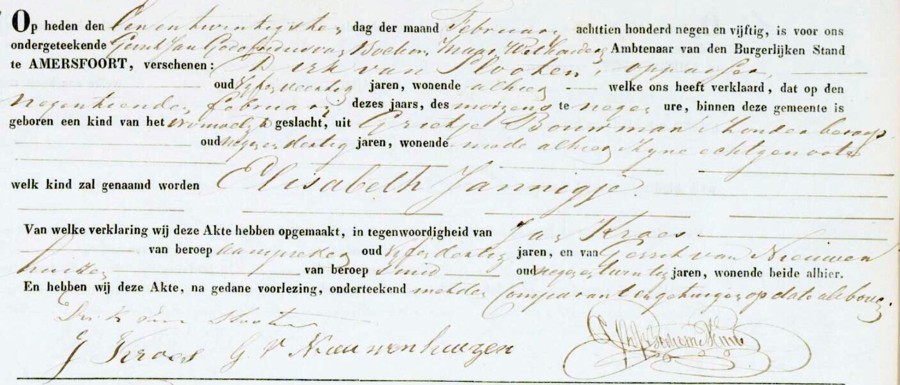 Op heden den Eenentwintigsten dag der maand Februarij achttien honderd negen en vijftig, is voor ons
ondergeteekende Gerrit Jan Wethouder, Ambtenaar van den Burgerlijken Stand
te AMERSFOORT, verschenen: Dirk van Slooten, oppasser,
oud vijfendertig jaren, wonende alhier welke ons heeft verklaard, dat op den
negentienden februarij dezes jaars, des morgens te negen ure, binnen deze gemeente is
geboren een kind van het vrouwelijk geslacht, uit Grietje Bouwman zonder beroep
oud negenendertig jaren, wonende mede alhier zijne echtgenoote
welk kind zal genaamd worden Elisabeth Jannigje.
Van welke verklaring wij deze Akte hebben opgemaakt, in tegenwoordigheid van Jan Kroes
van beroep aanspreker oud jaren, en van Gerrit van Nieuwen
huizen van beroep smid oud negenentwintig jaren, wonende beide alhier.
En hebben wij deze Akte, na gedane voorlezing, onderteekend met den Comparant en getuigen op dato als boven
Dirk van Slooten
J Kroes G v Nieuwenhuizen